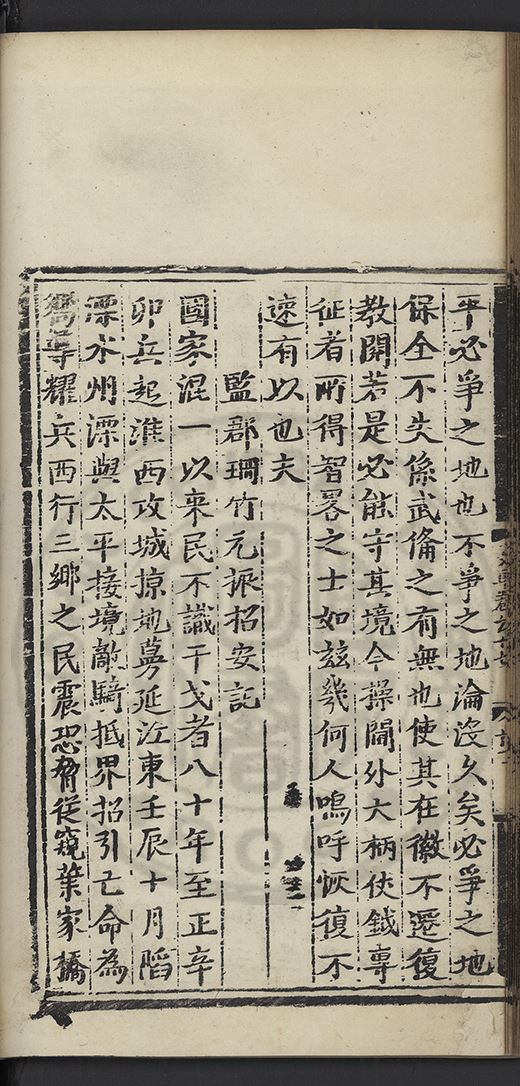 平必爭之地也不爭之地淪沒久矣必爭之地
保全不失係武俻之有無也使其在徽不遷復
教開若是必能守其境今操閫外大柄仗鉞專
征者所得智畧之士如玆幾何人嗚呼恢復不
速有以也夫
監郡珊竹元振招安記
國家混一以来民不識干戈者八十年至正辛
卯兵起淮西攻城掠地蔓延江東壬辰十月陷
溧水州溧與太平接境敵騎抵界招引亡命為
等耀兵西行三鄉之民震恐脅從窺葉家橋